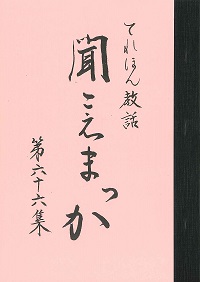 てれほん教話
聞こえまっか
第六十六集